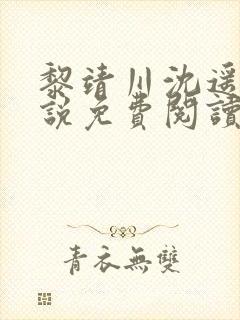 黎靖川沈遥
説免費閱讀
青衣無雙